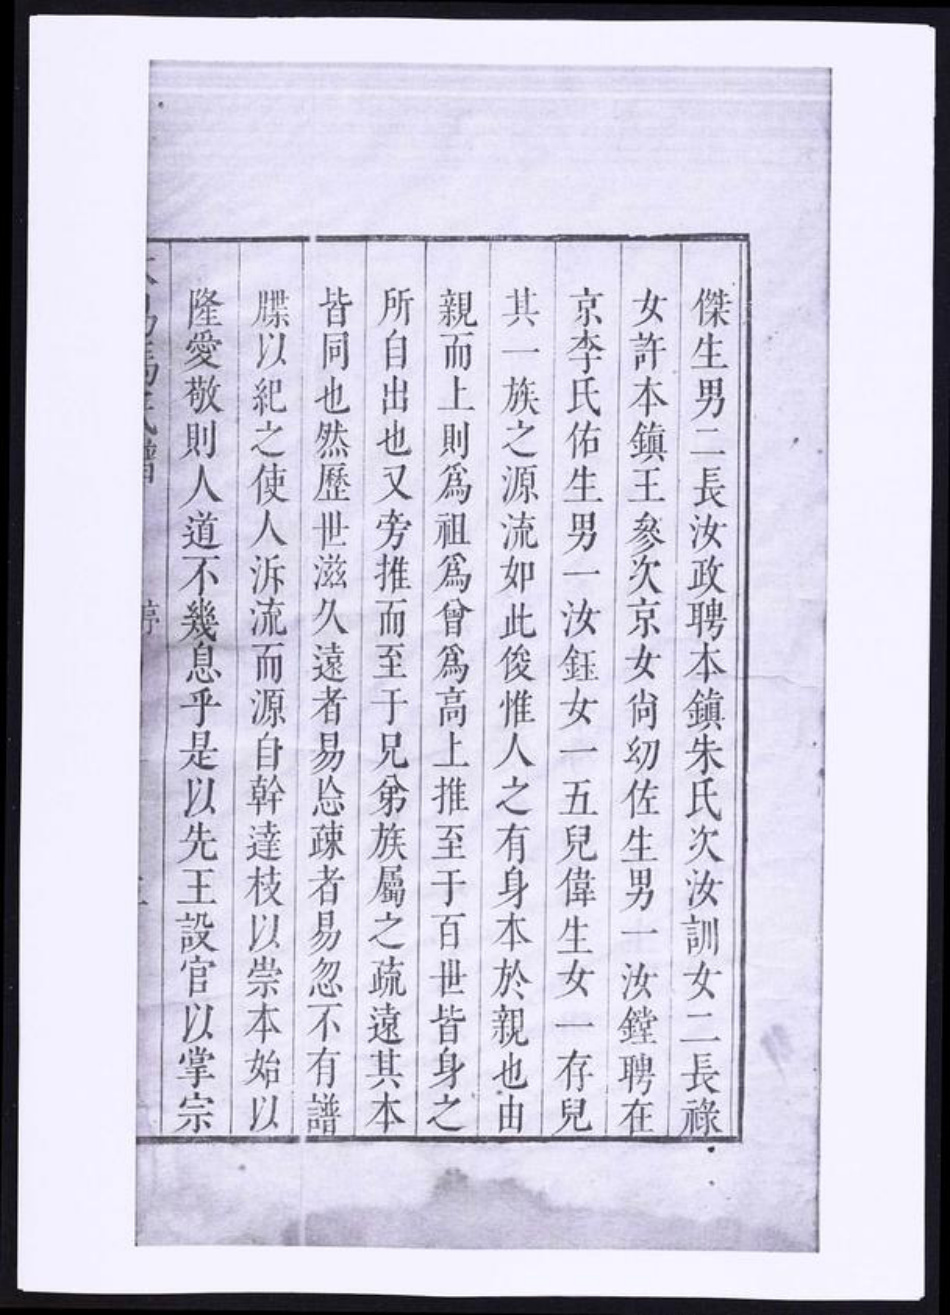 傑生男二長汝政聘本鎮朱氏次汝訓女二長祿
女許本鎮王參次京女尙幼佐生男一汝鏜聘在
京李氏佑生男一汝鈺女一五兒偉生女一存兒
其一族之源流如此俊惟人之有身本於親也由
親而上則爲祖爲曾爲高上推至于百世皆身之
所自出也又旁推而至于兄弟族屬之疏遠其本
皆同也然歷世滋久遠者易忘疎者易忽不有譜
牒以紀之使人泝流而源自幹達枝以崇本始以
隆愛敬則人道不幾息乎是以先王設官以掌宗
氏譜